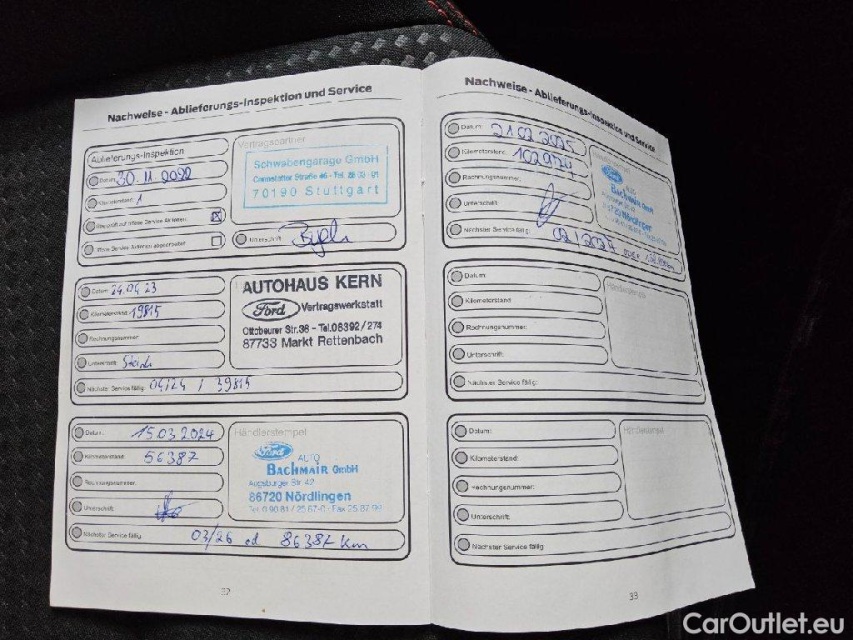 Nachweise - Ablieferungs-Inspektion und Service
Ablieferungs-Inspektion
Vertragspartner
Datum: 30.11.2022
Kilometerstand: 1
Schwabengarage GmbH
Cannstatter Straße 46 - Tel.
70190 Stuttgart
Unterschrift:
Datum: 24.04.23
Kilometerstand: 19815
Rechnungsnummer:
Unterschrift:
Nächster Service fällig: 04/24 / 39815
AUTOHAUS KERN
Ford Vertragswerkstatt
Ottobeurer Str.36 - Tel.08392/274
87733 Markt Rettenbach
Datum: 15.03.2024
Kilometerstand: 56387
Rechnungsnummer:
Unterschrift:
Nächster Service fällig: 03/26 od 86387 km
Händlerstempel
Ford AUTO
BACHMAIR GmbH
Augsburger Str. 42
86720 Nördlingen
Tel. 0 90 81 / 25 87-0 - Fax 25 87 99
32
Nachweise - Ablieferungs-Inspektion und Service
Datum: 21.02.2025
Kilometerstand: 102974
Rechnungsnummer:
Unterschrift:
Nächster Service fällig: 02/2027
AUTO
BACHMAIR GmbH
86720 Nördlingen
Datum:
Kilometerstand:
Rechnungsnummer:
Unterschrift:
Nächster Service fällig:
Händlerstempel
Datum:
Kilometerstand:
Rechnungsnummer:
Unterschrift:
Nächster Service fällig
33
CarOutlet.eu